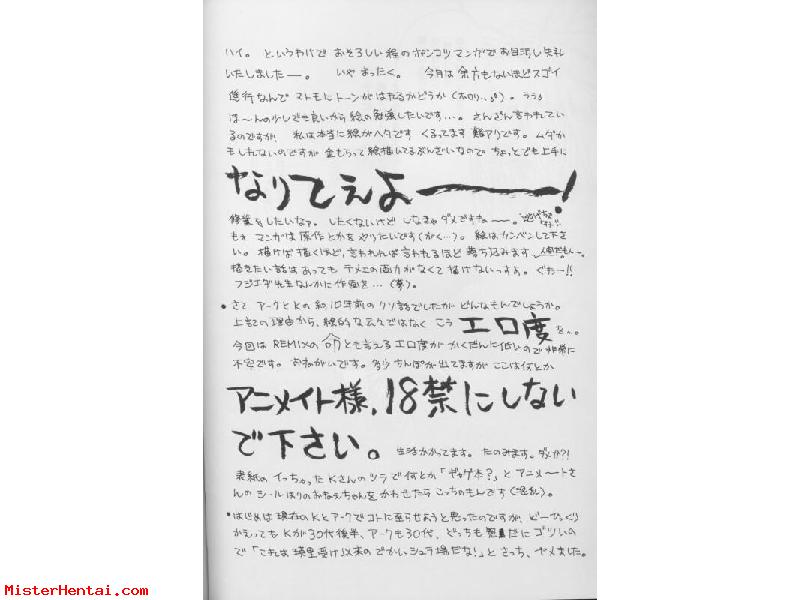 ハイ。というわけで おそろしい絵のポンコツマンガでお目汚し失礼
いたしましたー。 いや まったく。 今月は余力もないほどスゴイ
進行なんで マトモにトーンがはれるかどうか
は〜んの少しでも良いから絵の勉強したいです…。さんざん言われてい
るのですが、私は本当に絵がヘタです くるってます 難アリです。ムダか
もしれないのですが 金もらって絵描いてるぶんざいなので ちょっとでも上手に
なりてぇよ――!
修業をしたいなァ。したくないけど しなきゃダメですね―。
もォ マンガは原作とかをやりたいです(がく…)。絵はカンベンして下さ
い。描けば描くほど、言われれば言われるほど 落ち込みます
描きたい話はあっても テメエの画力がなくて描けないっすよ。ぐわー!!
フジエダ先生なんかに作画を…(夢)。
•さて アークとKの約10年前のクソ話でしたが どんなもんでしょうか。
上記の理由から、絵的な云々ではなく こう エロ度を。
今回は REMIXの命とも言えるエロ度が かくだんに低いので 非常に
不安です。おねがいです。多少ちんぽが出てますが ここは何とか
アニメイト様、18禁にしない
で下さい。 生活かかってます。たのみます。ダメか?!
表紙のイっちゃったKさんのツラで何とか「ギャグ本?」とアニメートさ
んのシールはりのおねえちゃんをかわせたら こっちのもんです(混乱)。
•はじめは現在のKとアークでコトに至らせようと思ったのですが、どーひっくり
かえってもKが30代後半、アークも30代、どっちも無駄にゴツいの
で「これは 以来の でかいシュラ場だな!」とさっち、ヤメました。
MisterHentai.com